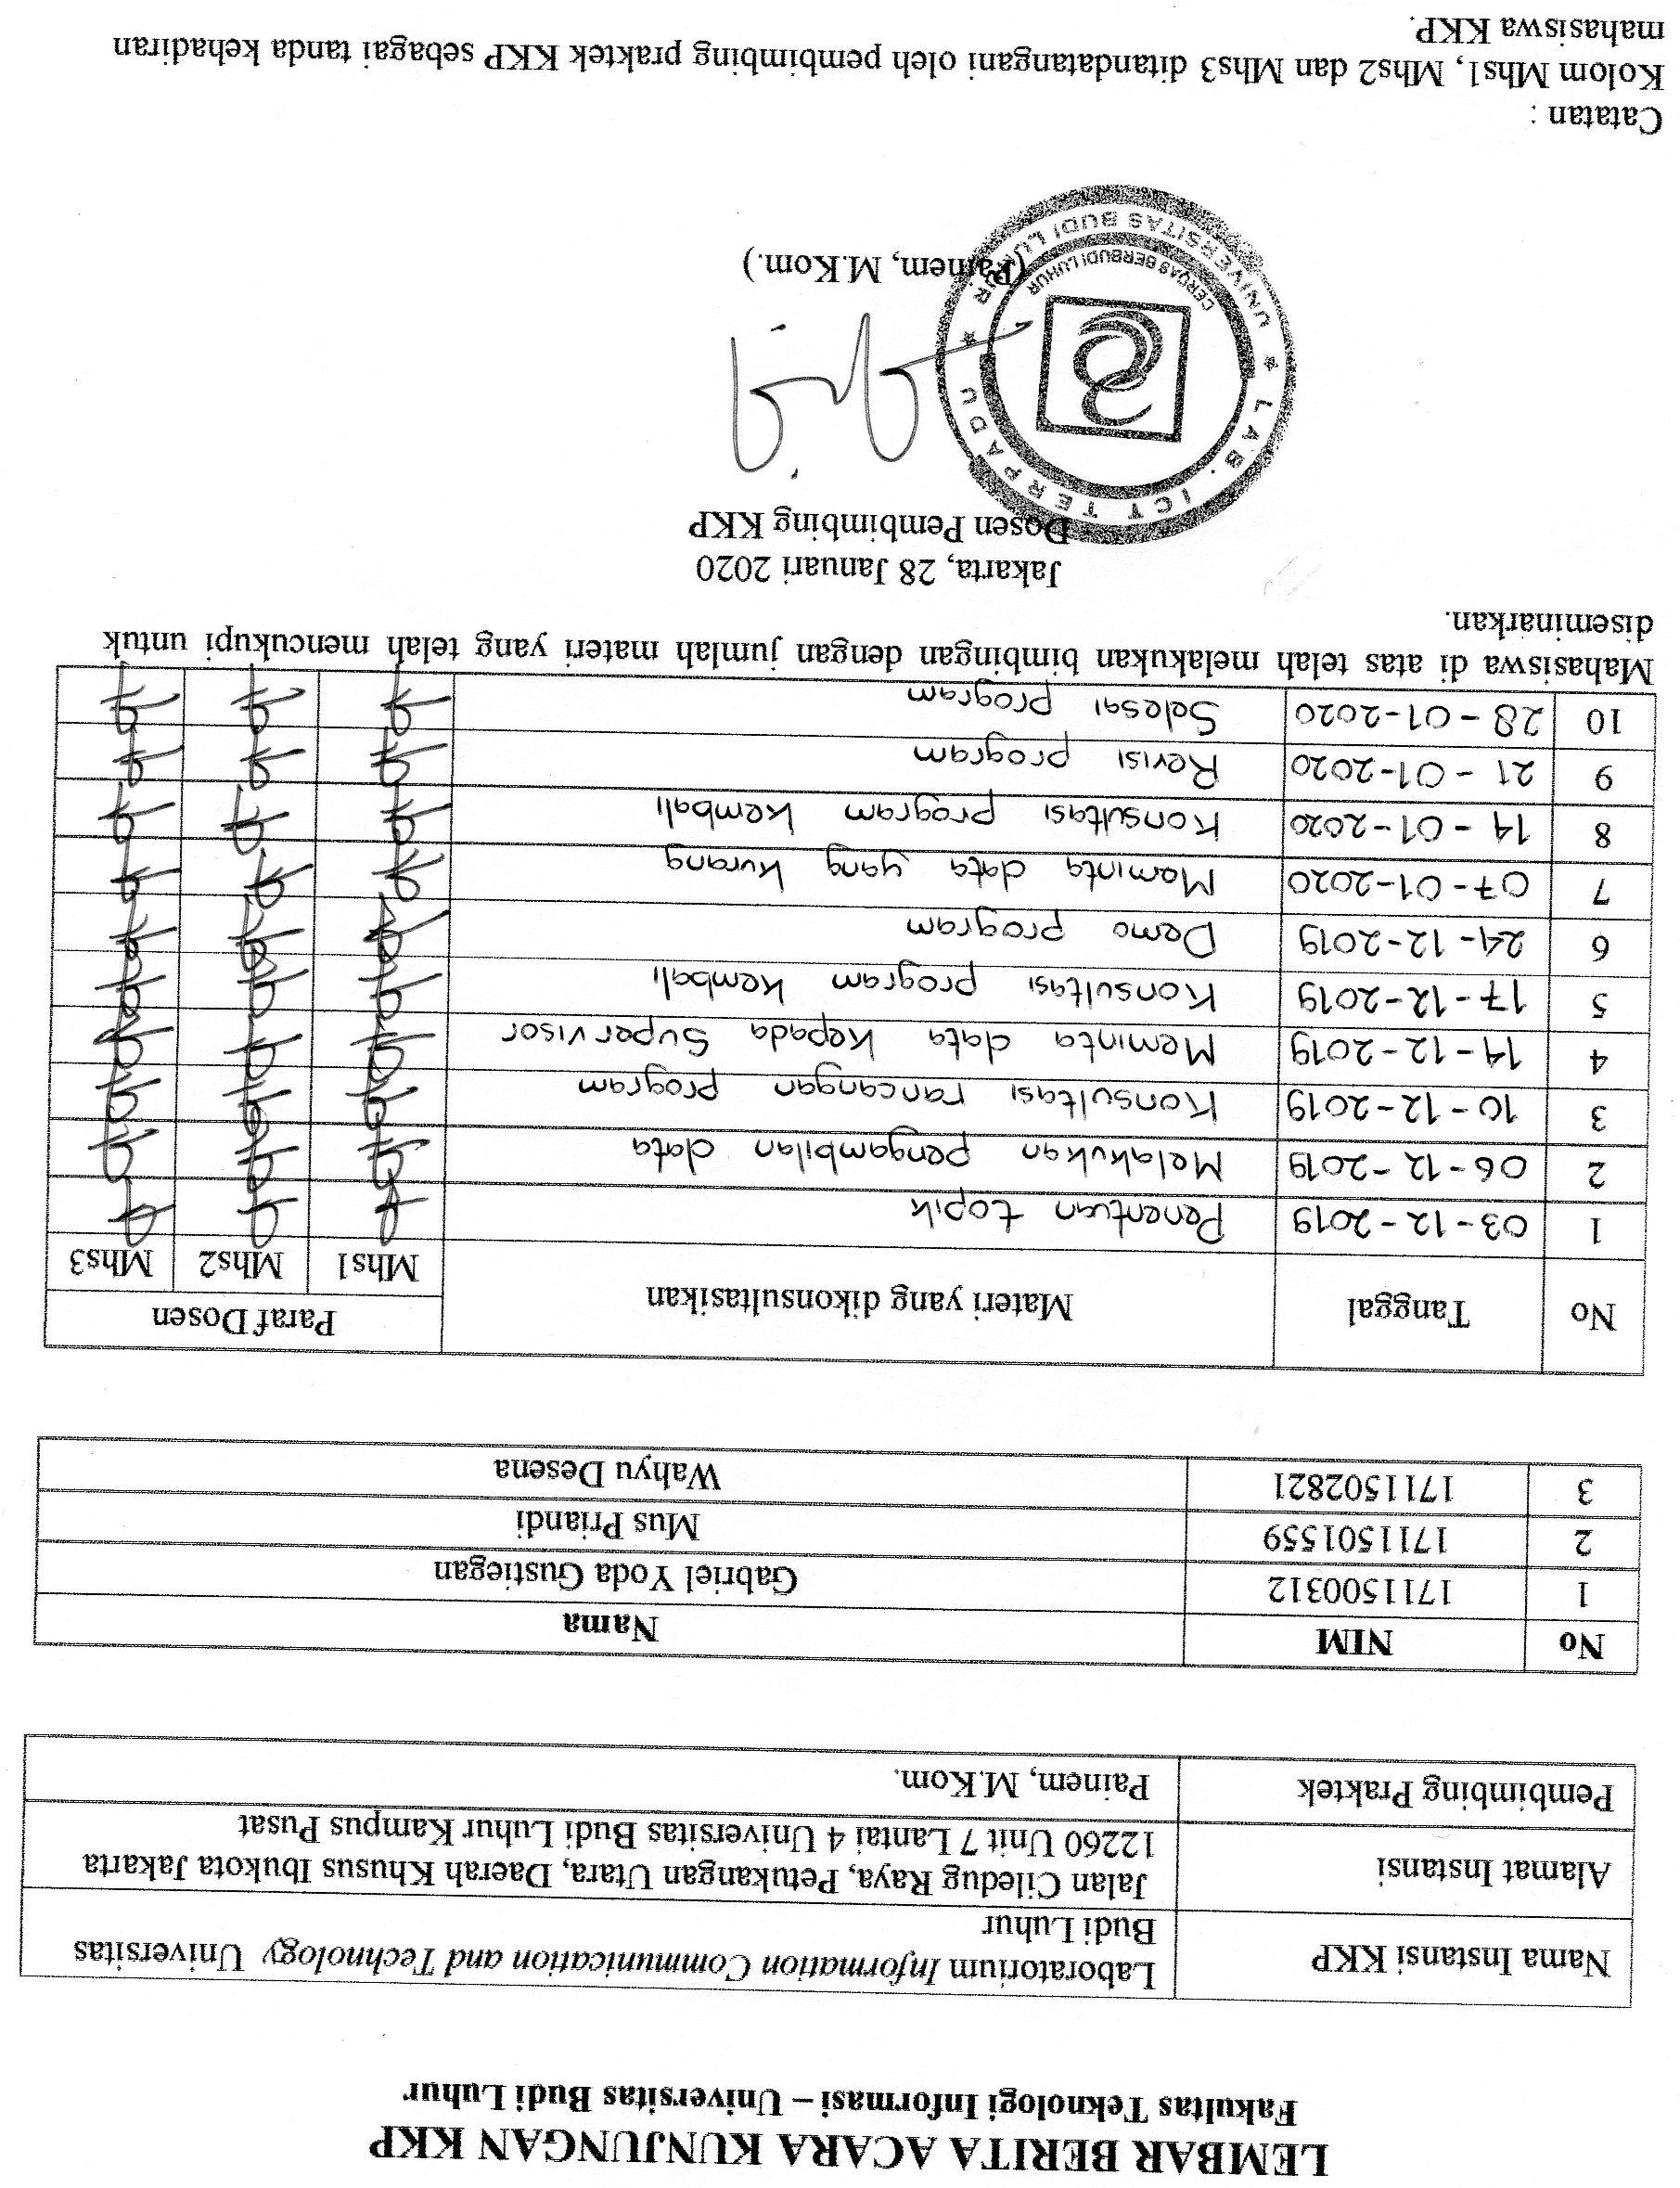 LEMBAR BERITA ACARA KUNJUNGAN KKP
Fakultas Teknologi Informasi – Universitas Budi Luhur
Nama Instansi KKP
Laboratorium Information Communication and Technology Universitas
Budi Luhur
Alamat Instansi
Jalan Ciledug Raya, Petukangan Utara, Daerah Khusus Ibukota Jakarta
12260 Unit 7 Lantai 4 Universitas Budi Luhur Kampus Pusat
Pembimbing Praktek
Painem, M.Kom.
No NIM Nama
1 1711500312 Gabriel Yoda Gustiegan
2 1711501559 Mus Priandi
3 1711502821 Wahyu Desena
No Tanggal Materi yang dikonsultasikan Paraf Dosen
Mhs1 Mhs2 Mhs3
1 03-12-2019 Penentuan topik
2 06-12-2019 Melakukan pengambilan data
3 10-12-2019 Konsultasi rancangan program
4 14-12-2019 Meminta data kepada supervisor
5 17-12-2019 Konsultasi program kembali
6 24-12-2019 Demo program
7 07-01-2020 Meminta data yang kurang
8 14-01-2020 Konsultasi program kembali
9 21-01-2020 Revisi program
10 28-01-2020 Selesai program
Mahasiswa di atas telah melakukan bimbingan dengan jumlah materi yang telah mencukupi untuk
diseminarkan.
Jakarta, 28 Januari 2020
Dosen Pembimbing KKP
LAB. ICT TERPADU
UNIVERSITAS BUDI LUHUR
CERDAS BERBUDI LUHUR
(Painem, M.Kom.)
Catatan :
Kolom Mhs1, Mhs2 dan Mhs3 ditandatangani oleh pembimbing praktek KKP sebagai tanda kehadiran
mahasiswa KKP.